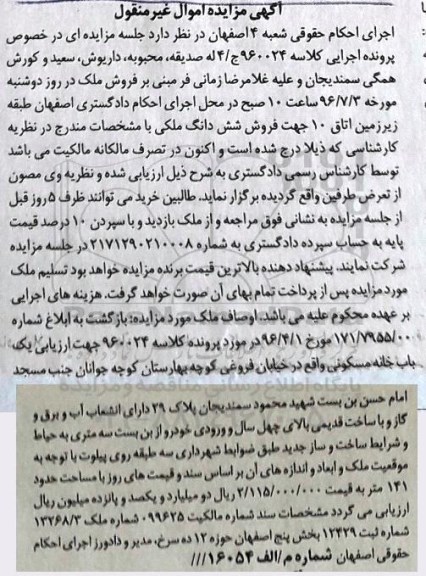 آگهی مزایده اموال غیرمنقول
اجرای احکام حقوقی شعبه ۴ اصفهان در نظر دارد جلسه مزایده ای در خصوص
پرونده اجرایی کلاسه ۹۶۰۰۲۴ج/۴ له صدیقه، محبوبه، داریوش، سعید و کورش
همگی سمندیجان و علیه غلامرضا زمانی فر مبنی بر فروش ملک در روز دوشنبه
مورخه ۹۶/۷/۳ ساعت ۱۰ صبح در محل اجرای احکام دادگستری اصفهان طبقه
زیرزمین اتاق ۱۰ جهت فروش شش دانگ ملکی با مشخصات مندرج در نظریه
کارشناسی که ذیلا درج شده است و اکنون در تصرف مالکانه مالکیت می باشد
توسط کارشناس رسمی دادگستری به شرح ذیل ارزیابی شده و نظریه وی مصون
از تعرض طرفین واقع گردیده برگزار نماید. طالبین خرید می توانند ظرف ۵ روز قبل
از جلسه مزایده به نشانی فوق مراجعه و از ملک بازدید و با سپردن ۱۰ درصد قیمت
پایه به حساب سپرده دادگستری به شماره ۲۱۷۱۲۹۰۲۱۰۰۰۸ در جلسه مزایده
شرکت نمایند. پیشنهاد دهنده بالاترین قیمت برنده مزایده خواهد بود تسلیم ملک
مورد مزایده پس از پرداخت تمام بهای آن صورت خواهد گرفت. هزینه های اجرایی
بر عهده محکوم علیه می باشد. اوصاف ملک مورد مزایده: بازگشت به ابلاغ شماره
۱۷۱/۷۹۵۵/۰۰ مورخ ۹۶/۴/۱ در مورد پرونده کلاسه ۹۶۰۰۲۴ جهت ارزیابی یک
باب خانه مسکونی واقع در خیابان فروغی کوچه بهارستان کوچه جوانان جنب مسجد
امام حسن بن بست شهید محمود سمندیجان پلاک ۲۹ دارای انشعاب آب و برق و
گاز و با ساخت قدیمی بالای چهل سال و ورودی خودرو از بن بست سه متری به حیاط
و شرایط ساخت و ساز جدید طبق ضوابط شهرداری سه طبقه روی پیلوت با توجه به
موقعیت ملک و ابعاد و اندازه های آن بر اساس سند و قیمت های روز با مساحت حدود
۱۴۱ متر به قیمت ۲/۱۱۵/۰۰۰/۰۰۰ ریال دو میلیارد و یکصد و پانزده میلیون ریال
ارزیابی می گردد مشخصات سند شماره مالکیت ۰۹۹۶۲۵ شماره ملک ۱۳۲۶۸/۳
شماره ثبت ۱۲۴۲۹ بخش پنج اصفهان حوزه ۱۲ ده سرخ، مدیر و دادورز اجرای احکام
حقوقی اصفهان شماره م/الف ۱۶۰۵۴///